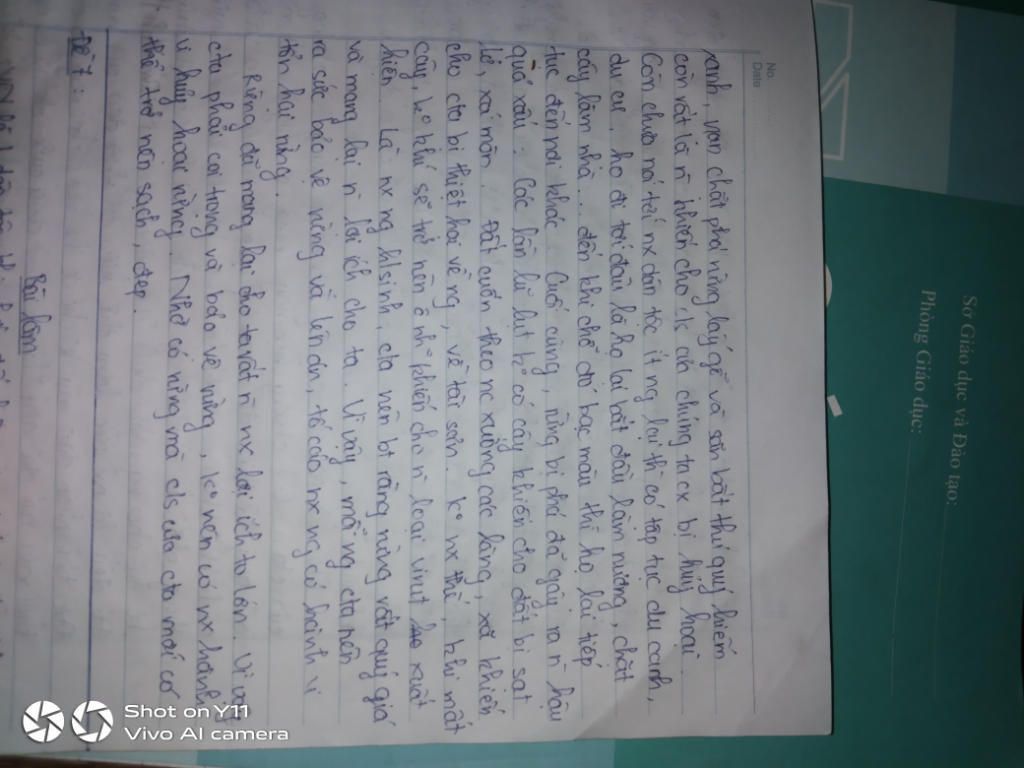 No.
Date
ranh, nạn chặt phá rừng lấy gỗ và săn bắt thú quý hiếm
còn rất là n` khiến cho c/s của chúng ta cx bị huỷ hoại.
Còn chưa nói tới nx dân tộc ít ng lại thì có tập tục du canh,
du cư, họ đi tới đâu là họ lại bắt đầu làm nương, chặt
cây làm nhà... đến khi chỗ đó bạc màu thì họ lại tiếp
tục đến nơi khác. Cuối cùng, rừng bị phá đã gây ra n` hậu
quả xấu. Các lần lũ lụt k° có cây khiến cho đất bị sạt
lở, xói mòn. Đất cuốn theo nc xuống các làng, xã khiến
cho cta bị thiệt hại về ng, về tài sản. K° nx thế, khi mất
cây, k° khí sẽ trở nên ô nh° khiến cho n` loại virut xuất
hiện. Là nx ng h/sinh, cta nên bt rằng rừng rất quý giá
và mang lại n` lợi ích cho ta. Vì vậy, mỗi ng cta nên
ra sức bảo vệ rừng và lên án, tố cáo nx ng có hành vi
tổn hại rừng.
Rừng đã mang lại cho ta rất n` nx lợi ích to lớn. Vì vậy
cta phải coi trọng và bảo vệ rừng, k° nên có nx hành
vi huỷ hoại rừng. Nhờ có rừng mà c/s của cta mới có
thể trở nên sạch, đẹp.
Đề 7:
Bài làm
Sở Giáo dục và Đào tạo:
Phòng Giáo dục:
Shot on Y11
Vivo AI camera